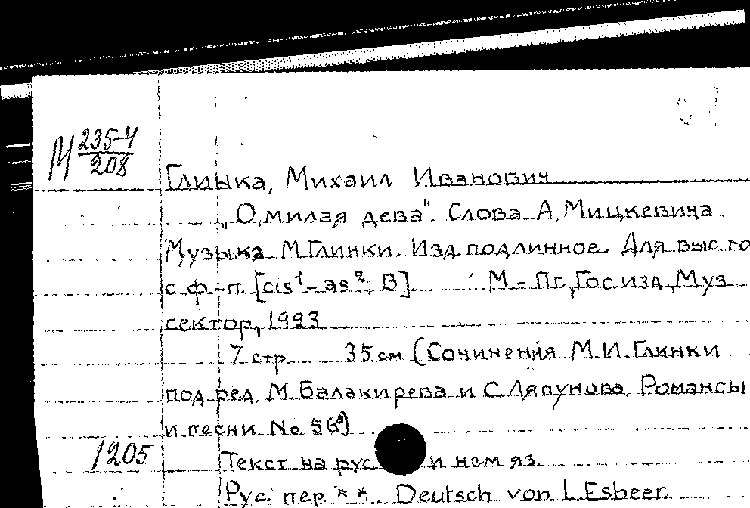 М 235-4
208
Глинка, Михаил Иванович
„О, милая дева". Слова А. Мицкевича.
Музыка М. Глинки. Изд. подлинное. Для выс. го
с ф-п. [cis¹-as², B]. М.-Пг., Гос. изд., Муз
сектор, 1923
7 стр. 35 см (Сочинения М. И. Глинки
под ред. М. Балакирева и С. Ляпунова. Романсы
и песни №)
1205 Текст на рус и нем яз.
Рус. пер. **. Deutsch von L. Esbeer.